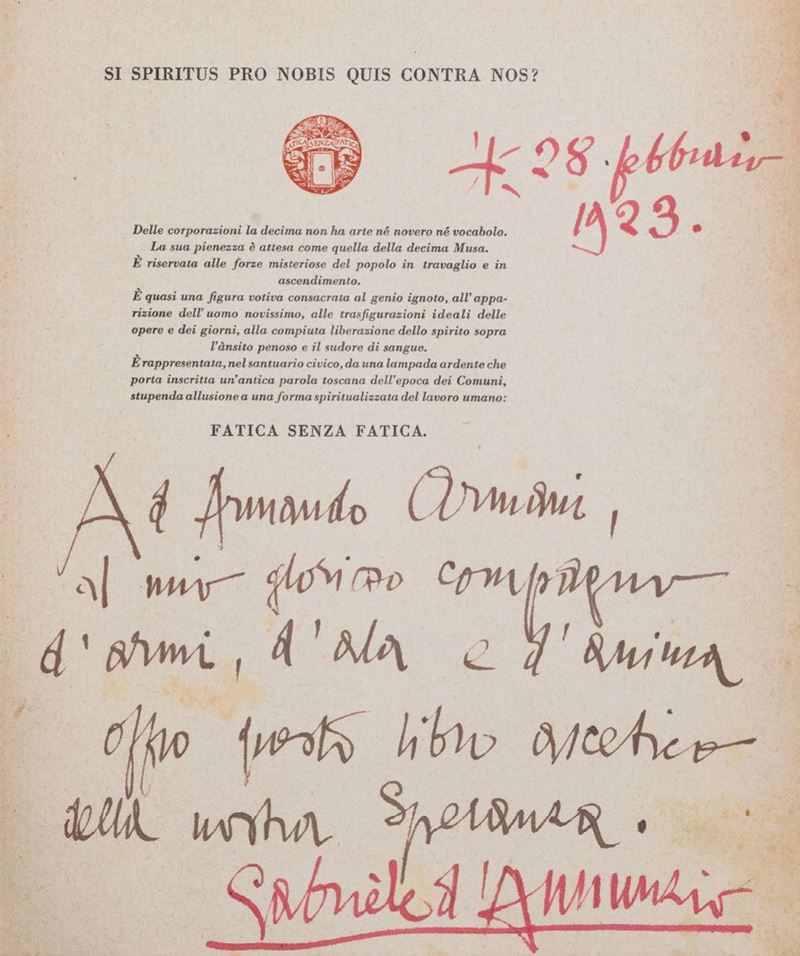 SI SPIRITUS PRO NOBIS QUIS CONTRA NOS?
FATICA SENZA FATICA
28 febbraio
1923.
Delle corporazioni la decima non ha arte né novero né vocabolo.
La sua pienezza è attesa come quella della decima Musa.
È riservata alle forze misteriose del popolo in travaglio e in
ascendimento.
È quasi una figura votiva consacrata al genio ignoto, all'appa-
rizione dell'uomo novissimo, alle trasfigurazioni ideali delle
opere e dei giorni, alla compiuta liberazione dello spirito sopra
l'ànsito penoso e il sudore di sangue.
È rappresentata, nel santuario civico, da una lampada ardente che
porta inscritta un'antica parola toscana dell'epoca dei Comuni,
stupenda allusione a una forma spiritualizzata del lavoro umano:
FATICA SENZA FATICA.
Ad Armando Armani,
al mio glorioso compagno
d'armi, d'ala e d'anima
offro questo libro ascetico
della nostra Speranza.
Gabriele d'Annunzio